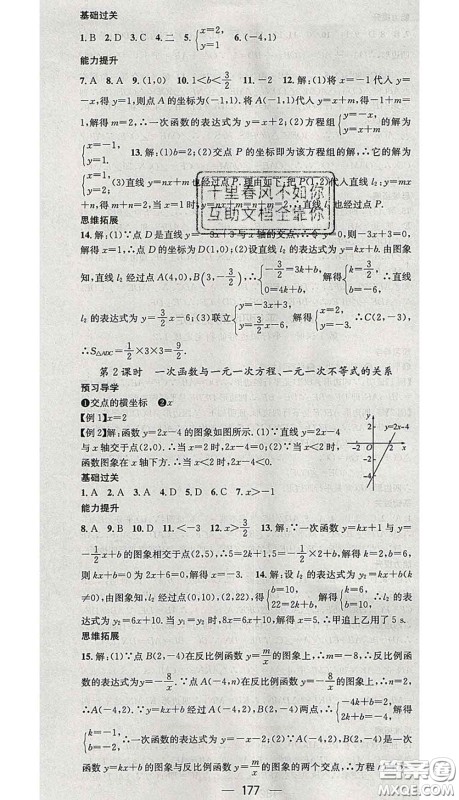 基础过关
1. B 2. D 3. C 4. 二 5. {x=2, y=1 6. (-4,1)
能力提升
7. A 8. A 9. (1,0) 10. 1<b<3/2 11. -2 12. 解:(1)将 x=-1 代入 y
=-x,得 y=1,则点 A 的坐标为(-1,1). 将 A(-1,1)代入 y=x+m,得-1+m=
1,解得 m=2,∴一次函数的表达式为 y=x+2;(2)方程组{y=-x, y=x+m 的解为
{x=-1, y=1. 13. 解:(1)b=2;(2)交点 P 的坐标即为该方程组的解,∴它的解为
{x=1, y=2; (3)直线 y=nx+m 也经过点 P. 理由如下:把 P(1,2)代入直线 l₂:y=mx+n,∴当
x=1 时,y=n×1+m=n+m=2,∴直线 l₃ 也经过点 P.
思维拓展
14. 解:(1)∵点 D 是直线 y=-3x+3 与 x 轴的交点,∴令 y=0,
知,直线 l₂ 经过点 A(4,0),B(3,-3/2),∴{-3/2=3k+b, 0=4k+b, 解得{k=3/2, b=-6, ∴直线
l₂ 的表达式为 y=3/2x-6;(3)联立{y=-3x+3, y=3/2x-6, 解得{x=2, y=-3, ∴C(2,-3),
∴S△ADC=1/2×3×3=9/2.
第 2 课时 一次函数与一元一次方程、一元一次不等式的关系
预习导学
❶交点的横坐标 ❷x
【例 1】x=2
【例 2】解:函数 y=2x-4 的图象如图所示. (1)∵直线 y=2x-4
与 x 轴交于点(2,0),∴当 x=2 时,2x-4=0. (2)∵当 x<2 时,
函数图象在 x 轴下方. ∴当 x<2 时,2x-4<0.
y
y=2x-4
2
-2 0 2 x
-2
-4
基础过关
1. A 2. A 3. C 4. D 5. D 6. C 7. x>-1
能力提升
8. A 9. A 10. D 11. <-3 12. x>3/2 13. 解:∵一次函数 y=kx+1 与 y=
-1/2x+b 的图象相交于点(2,5),∴5=2k+1,5=-1/2×2+b,解得 k=2,b=6,
则 kx+b=0 为 2x+6=0,解得 x=-3. 14. 解:设 l₂ 的表达式为 y=kx+b(k
≠0),由图象知,l₂ 经过点(0,10),(2,22),∴{b=10, 22=2k+b, 解得{b=10, k=6. ∴l₂ 的表达
式为 y₂=6x+10,当 6x+10=8x 时,解得 x=5. ∴甲追上乙用了 5 s.
思维拓展
15. 解:(1)∵点 B(2,-4)在反比例函数 y=m/x 的图象上,∴m=-8,∴反比例函
数的表达式为 y=-8/x. ∵点 A(-4,n)在反比例函数 y=-8/x 的图象上,∴n=2,
∴A(-4,2). ∵一次函数 y=kx+b 经过 A(-4,2),B(2,-4)两点,∴{-4k+b=2, 2k+b=-4,
解得{k=-1, b=-2, ∴一次函数的表达式为 y=-x-2;(2)∵A(-4,2),B(2,-4)是一次
函数 y=kx+b 的图象与反比例函数 y=m/x 的图象的两个交点,∴方程
177
千里春风不如你
互助文档全靠你
答案圈
MXQE.COM